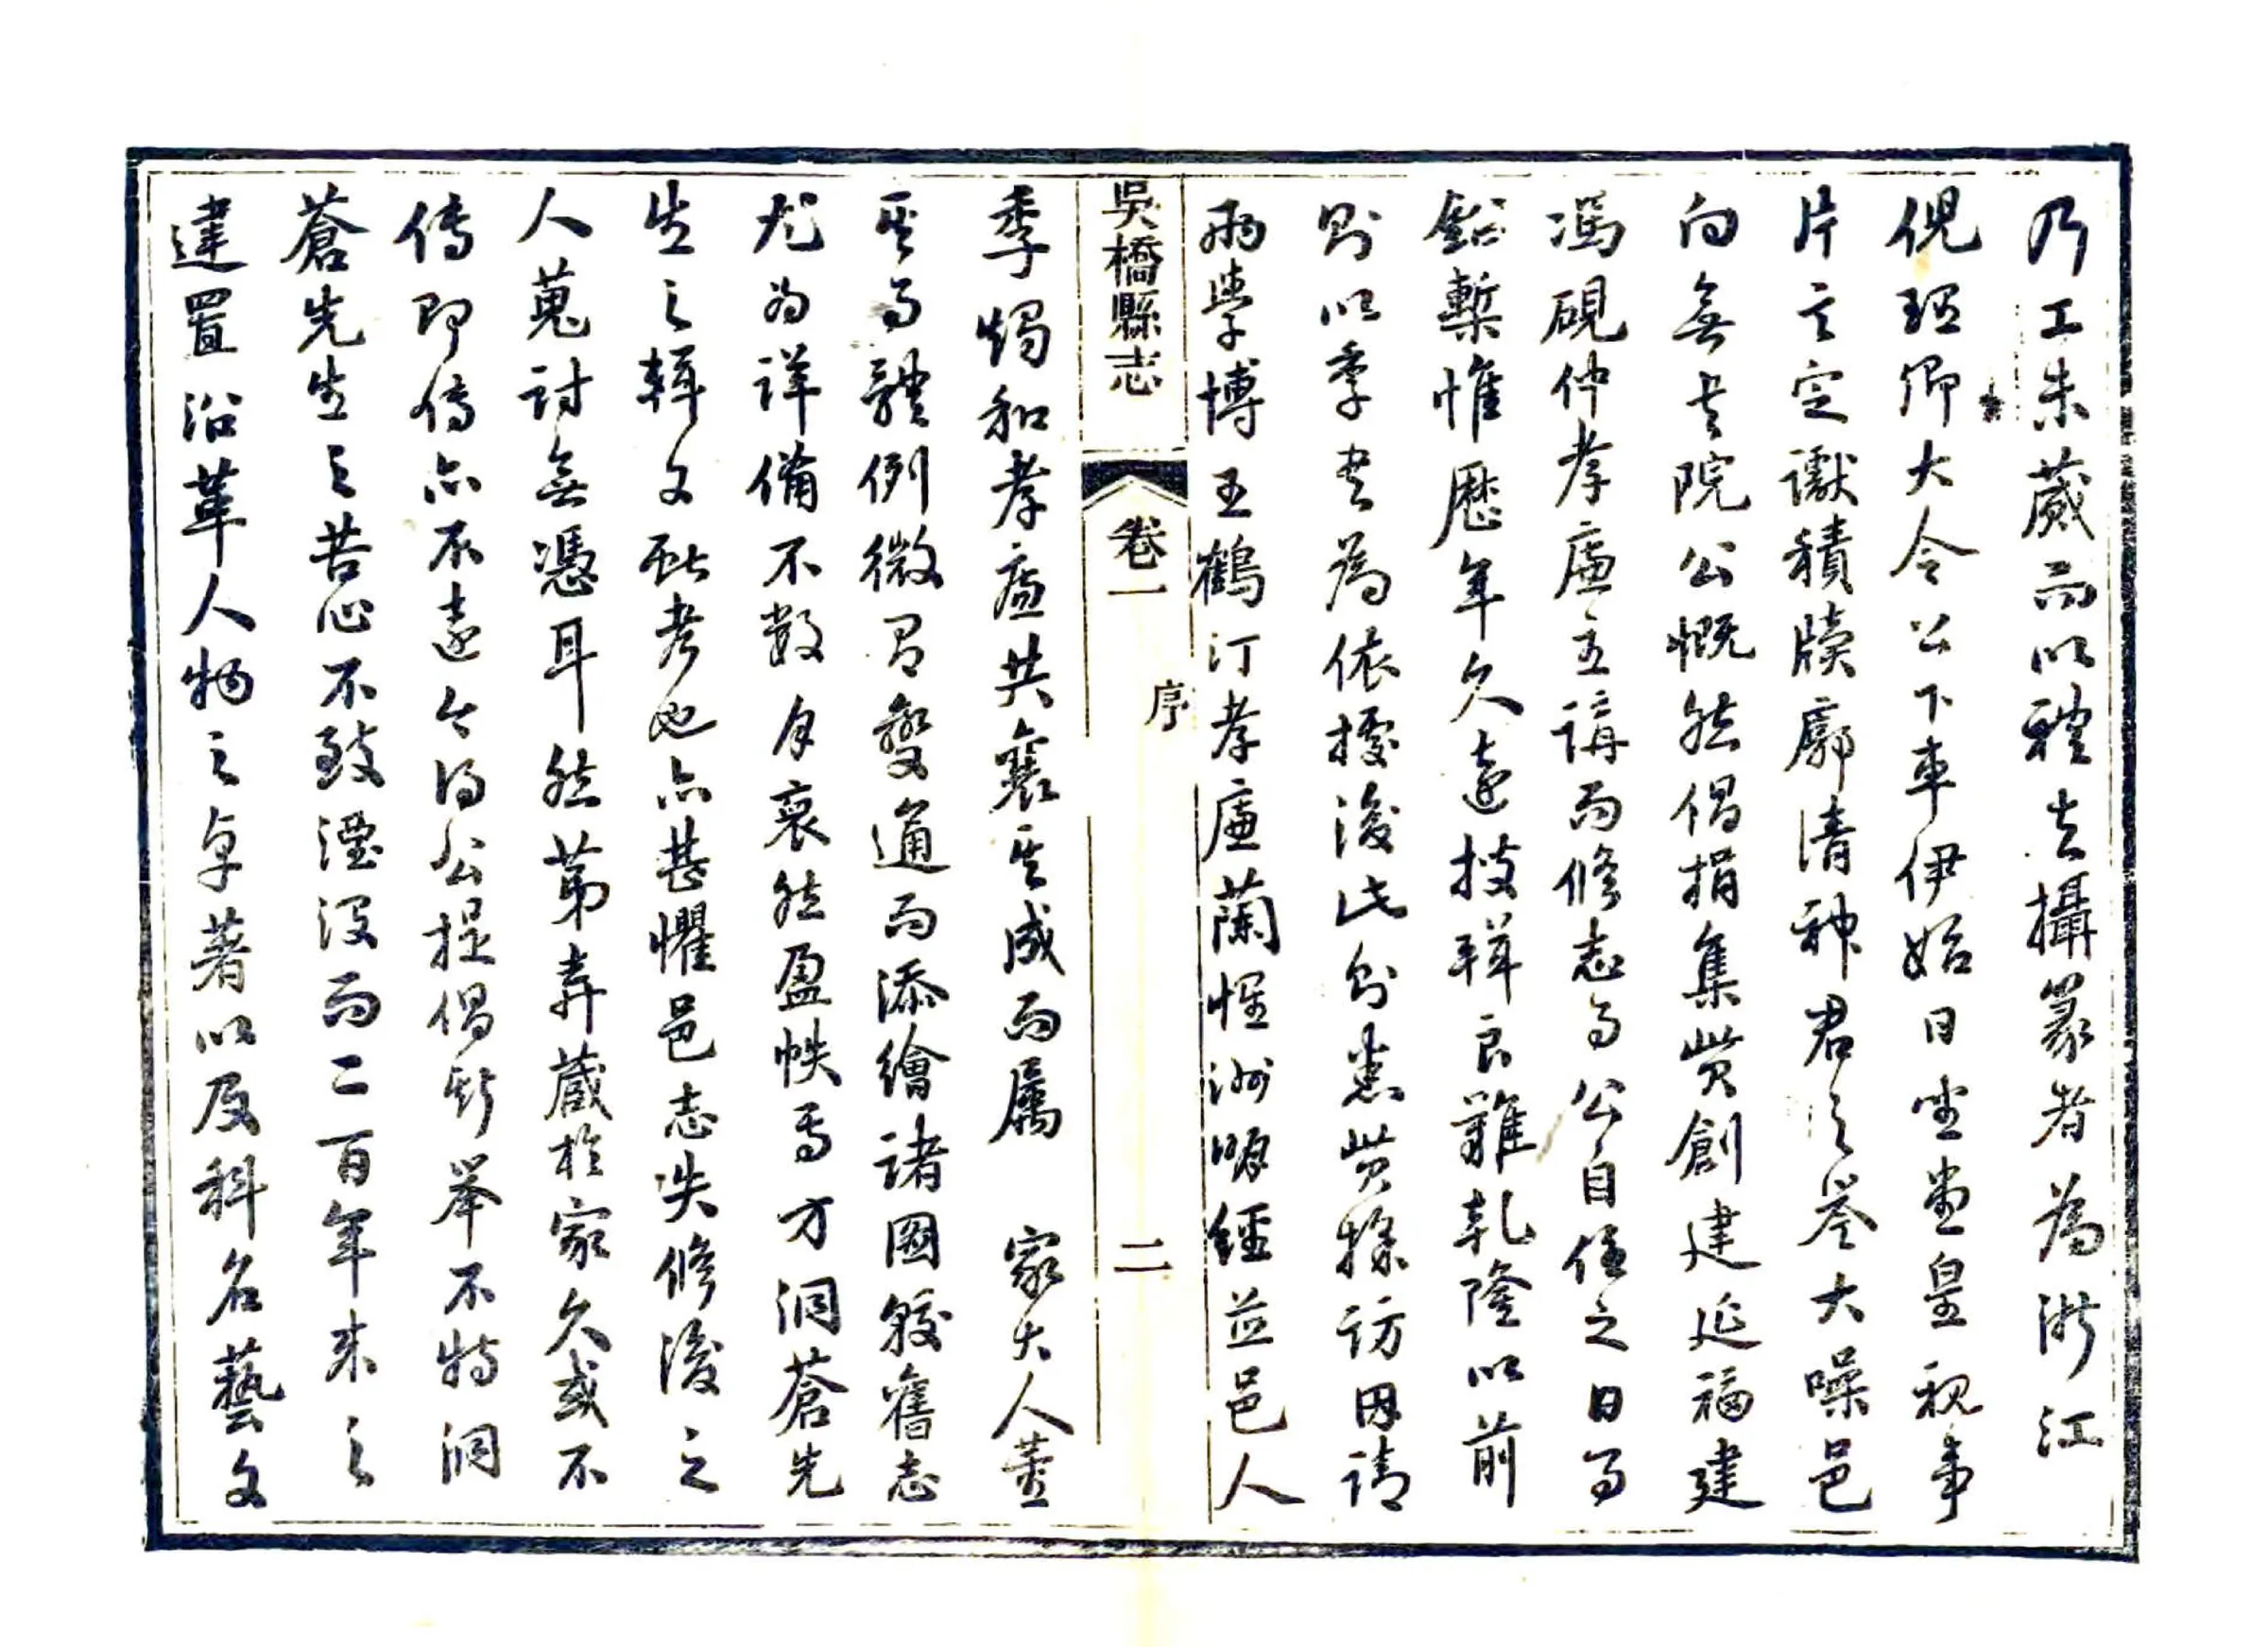 乃工未蕆而以禮去攝篆者為浙江
倪珏卿大令公下車伊始日坐堂皇視事
片言定讞積牘廓清神君之譽大噪邑
向無書院公慨然倡捐集貲創建延福建
馮硯仲孝廉主講而修志與公自任之日與
鉛槧惟歷年久遠技輯良難乾隆以前
則以季書為依據後此則悉貲採訪因請
兩學博王鶴汀孝廉蘭惺洲明經並邑人
吳橋縣志
卷一
序
二
季燭和孝廉共襄其成而屬 家大人董
其事體例微有變通而添繪諸圖較舊志
尤為詳備不數月裒然盈帙焉方洞蒼先
生之輯文獻考也亦甚懼邑志失修後之
人蒐討無憑耳然第弆藏於家久或不
傳即傳亦不遠今得公提倡斯舉不特洞
蒼先生之苦心不致湮沒而二百年來之
建置沿革人物之卓著以及科名藝文